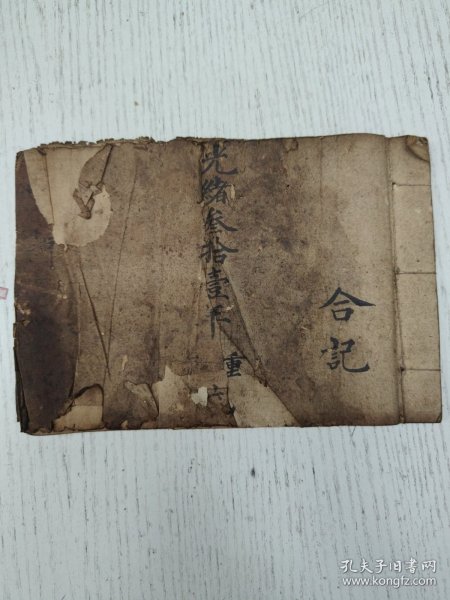 合記
光緒叁拾壹年 重六
孔夫子旧书网
www.kongfz.com